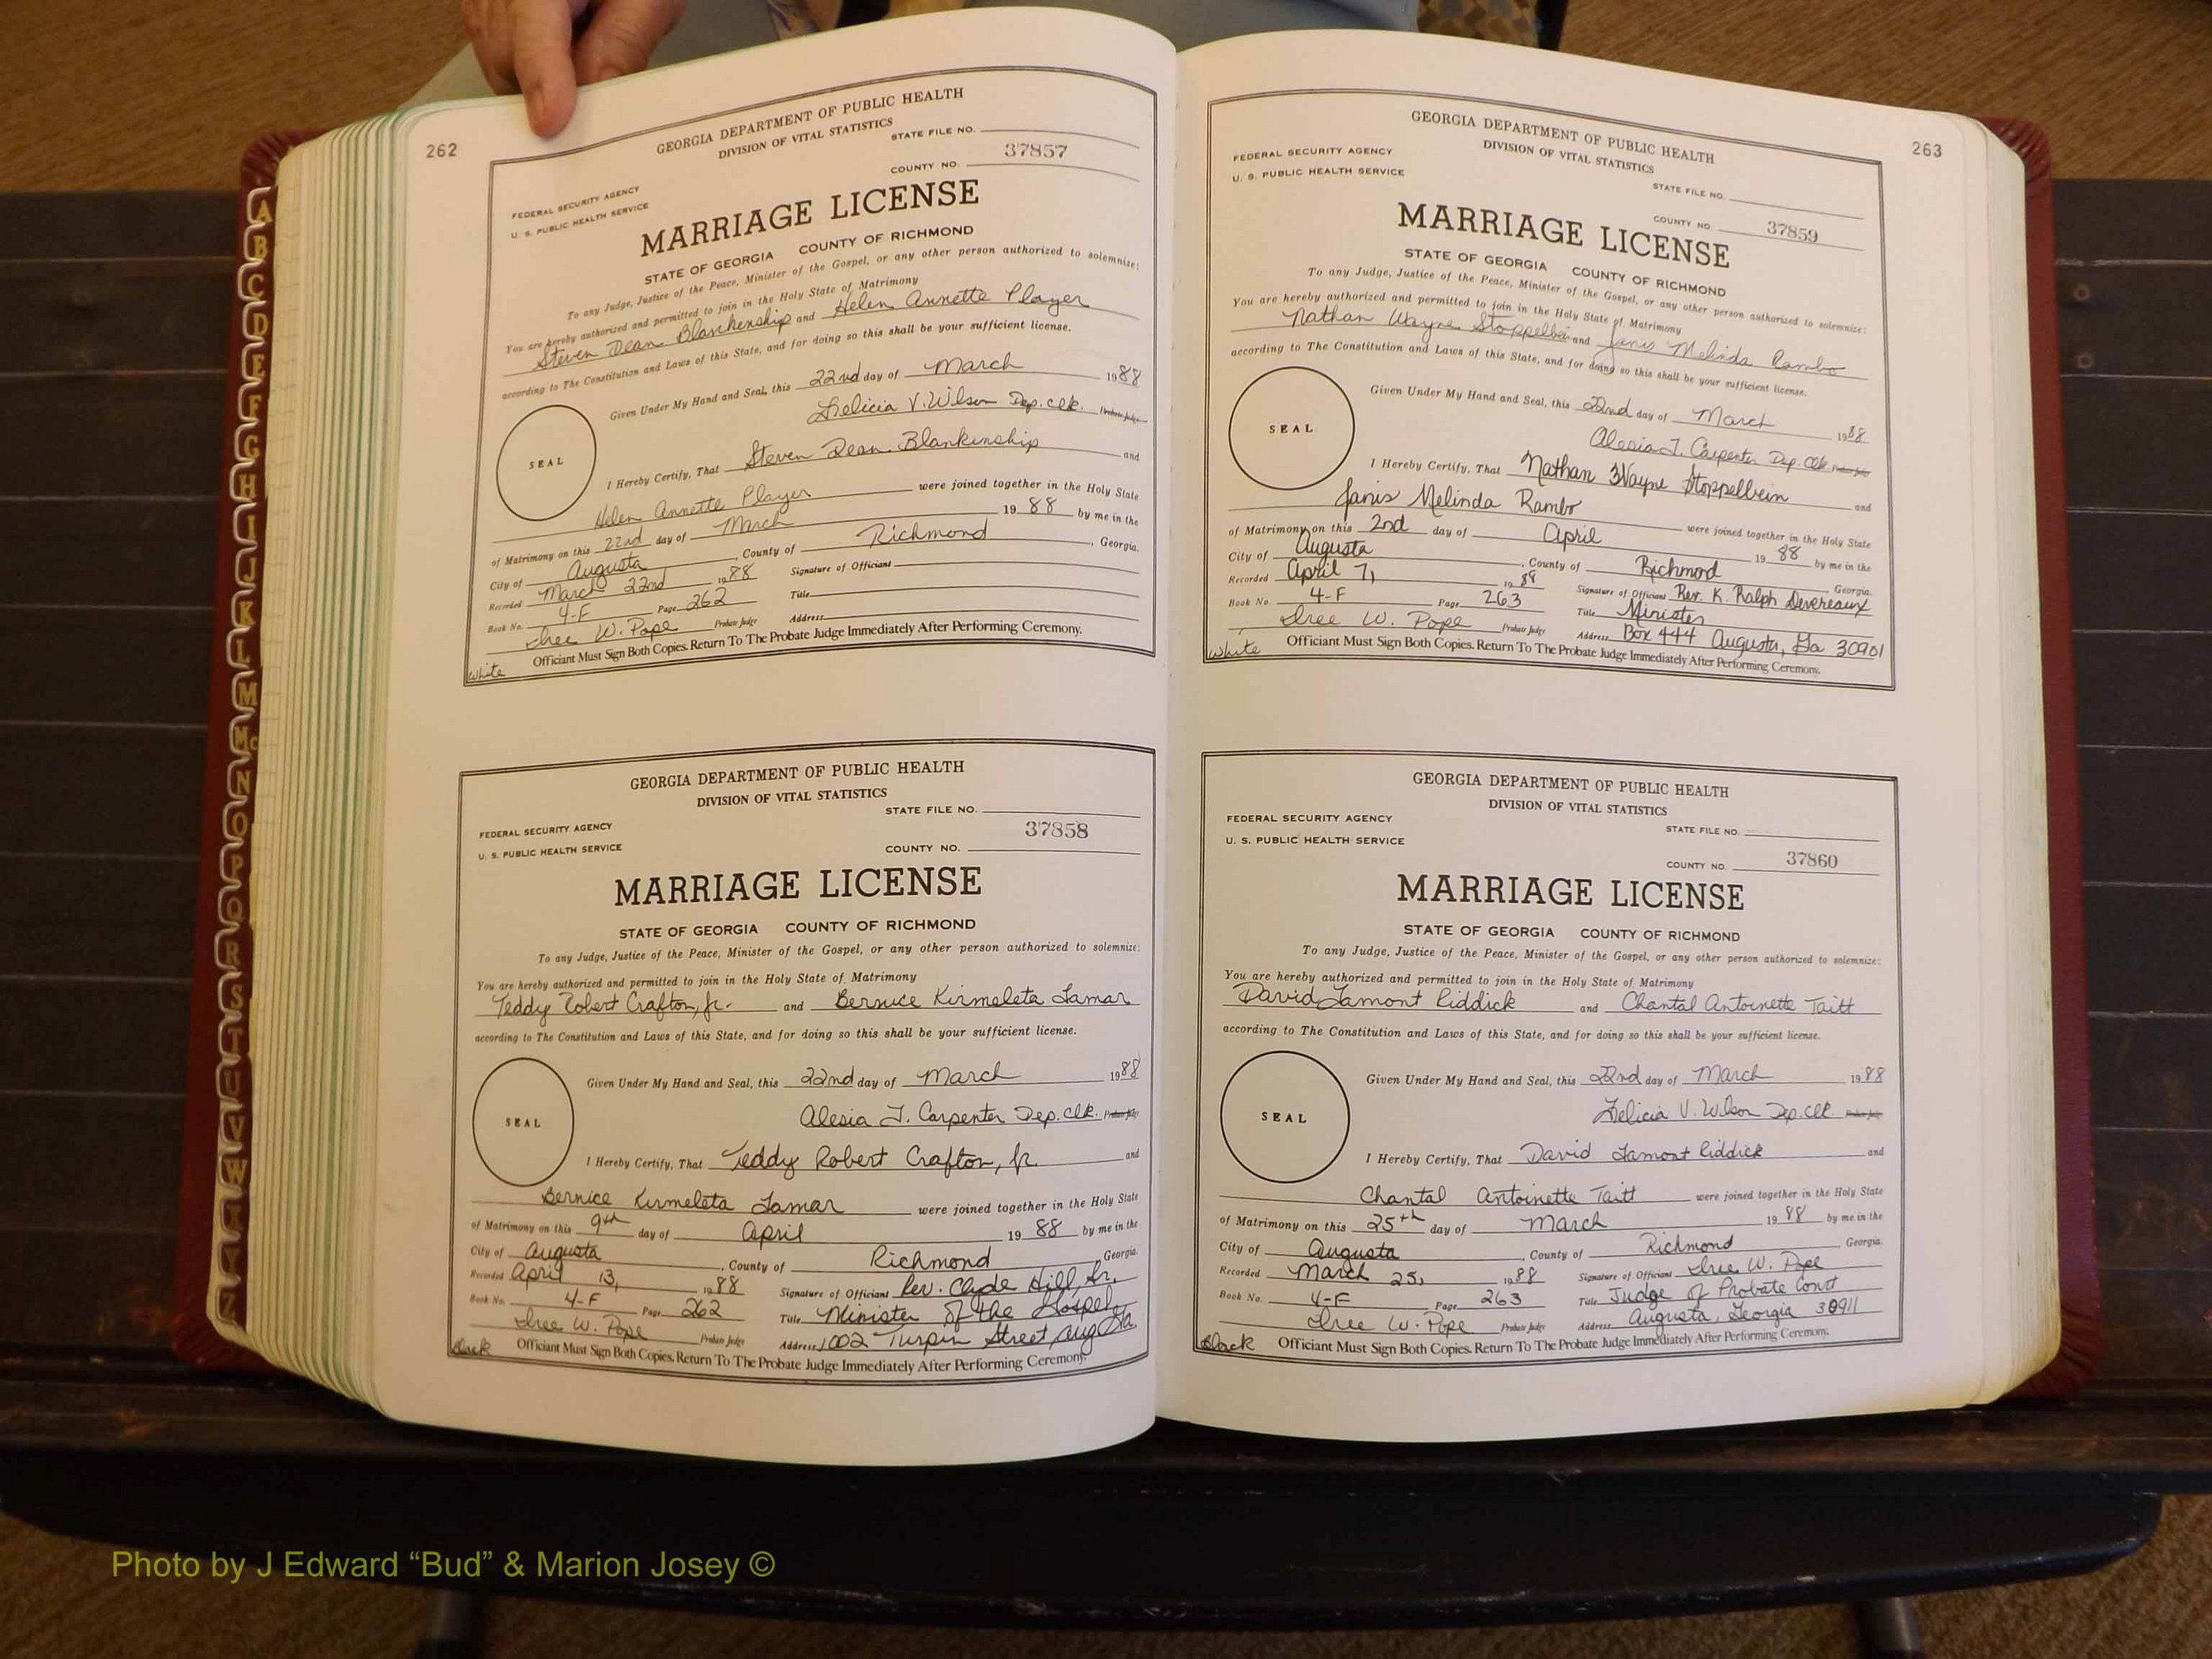 262
GEORGIA DEPARTMENT OF PUBLIC HEALTH
DIVISION OF VITAL STATISTICS
STATE FILE NO.
COUNTY NO. 37857
FEDERAL SECURITY AGENCY
U. S. PUBLIC HEALTH SERVICE
MARRIAGE LICENSE
STATE OF GEORGIA COUNTY OF RICHMOND
To any Judge, Justice of the Peace, Minister of the Gospel, or any other person authorized to solemnize:
You are hereby authorized and permitted to join in the Holy State of Matrimony
Steven Dean Blankenship and Helen Annette Player
according to The Constitution and Laws of this State, and for doing so this shall be your sufficient license.
Given Under My Hand and Seal, this 22nd day of March 1988
Felicia V. Wilson Dep. Clk. Probate Judge
SEAL
I Hereby Certify, That Steven Dean Blankenship and
Helen Annette Player were joined together in the Holy State
of Matrimony on this 22nd day of March 19 88 by me in the
City of Augusta, County of Richmond, Georgia.
Recorded March 22nd 1988 Signature of Officiant
Book No. 4-F Page 262 Title
W. Pope Probate Judge Address
Officiant Must Sign Both Copies. Return To The Probate Judge Immediately After Performing Ceremony.
White
GEORGIA DEPARTMENT OF PUBLIC HEALTH
DIVISION OF VITAL STATISTICS
STATE FILE NO.
37858
FEDERAL SECURITY AGENCY
U. S. PUBLIC HEALTH SERVICE
COUNTY NO.
MARRIAGE LICENSE
STATE OF GEORGIA COUNTY OF RICHMOND
To any Judge, Justice of the Peace, Minister of the Gospel, or any other person authorized to solemnize:
You are hereby authorized and permitted to join in the Holy State of Matrimony
Teddy Robert Crafton, Jr. and Bernice Kirmeleta Lamar
according to The Constitution and Laws of this State, and for doing so this shall be your sufficient license.
Given Under My Hand and Seal, this 22nd day of March 1988
Alesia J. Carpenter Dep. Clk. Probate Judge
SEAL
I Hereby Certify, That Teddy Robert Crafton, Jr. and
Bernice Kirmeleta Lamar were joined together in the Holy State
of Matrimony on this 9th day of April 19 88 by me in the
City of Augusta, County of Richmond, Georgia
Recorded April 13, 1988 Signature of Officiant Rev. Clyde Hill, Sr.
Book No. 4-F Page 262 Title Minister of the Gospel
W. Pope Probate Judge Address 1002 Turpin Street, Aug Ga.
Officiant Must Sign Both Copies. Return To The Probate Judge Immediately After Performing Ceremony.
Black
263
GEORGIA DEPARTMENT OF PUBLIC HEALTH
DIVISION OF VITAL STATISTICS
FEDERAL SECURITY AGENCY
U. S. PUBLIC HEALTH SERVICE
STATE FILE NO.
COUNTY NO 37859
MARRIAGE LICENSE
STATE OF GEORGIA COUNTY OF RICHMOND
To any Judge, Justice of the Peace, Minister of the Gospel, or any other person authorized to solemnize:
You are hereby authorized and permitted to join in the Holy State of Matrimony
Nathan Wayne Stoppelbein and Janis Melinda Rambo
according to The Constitution and Laws of this State, and for doing so this shall be your sufficient license.
Given Under My Hand and Seal, this 22nd day of March 1988
Alesia J. Carpenter Dep. Clk. Probate Judge
SEAL
I Hereby Certify, That Nathan Wayne Stoppelbein and
Janis Melinda Rambo were joined together in the Holy State
of Matrimony on this 2nd day of April 19 88 by me in the
City of Augusta, County of Richmond Georgia.
Recorded April 7, 1988 Signature of Officiant Rev. K. Ralph Devereaux
Book No. 4-F Page 263 Title Minister
W. Pope Probate Judge Address Box 444 Augusta, Ga 30901
Officiant Must Sign Both Copies. Return To The Probate Judge Immediately After Performing Ceremony.
White
GEORGIA DEPARTMENT OF PUBLIC HEALTH
DIVISION OF VITAL STATISTICS
FEDERAL SECURITY AGENCY
U. S. PUBLIC HEALTH SERVICE
STATE FILE NO.
COUNTY NO. 37860
MARRIAGE LICENSE
STATE OF GEORGIA COUNTY OF RICHMOND
To any Judge, Justice of the Peace, Minister of the Gospel, or any other person authorized to solemnize:
You are hereby authorized and permitted to join in the Holy State of Matrimony
David Lamont Riddick and Chantal Antoinette Taitt
according to The Constitution and Laws of this State, and for doing so this shall be your sufficient license.
Given Under My Hand and Seal, this 22nd day of March 1988
Felicia V. Wilson Dep. Clk. Probate Judge
SEAL
I Hereby Certify, That David Lamont Riddick and
Chantal Antoinette Taitt were joined together in the Holy State
of Matrimony on this 25th day of March 19 88 by me in the
City of Augusta, County of Richmond, Georgia.
Recorded March 25, 1988 Signature of Officiant W. Pope
Book No. 4-F Page 263 Title Judge of Probate Court
W. Pope Probate Judge Address Augusta, Georgia 30911
Officiant Must Sign Both Copies. Return To The Probate Judge Immediately After Performing Ceremony.
Black
A
B
C
D
E
F
G
H
I
J
K
L
M
Mc
N
O
P
Q
R
S
T
U
V
W
X
Y
Z
Photo by J Edward “Bud” & Marion Josey ©